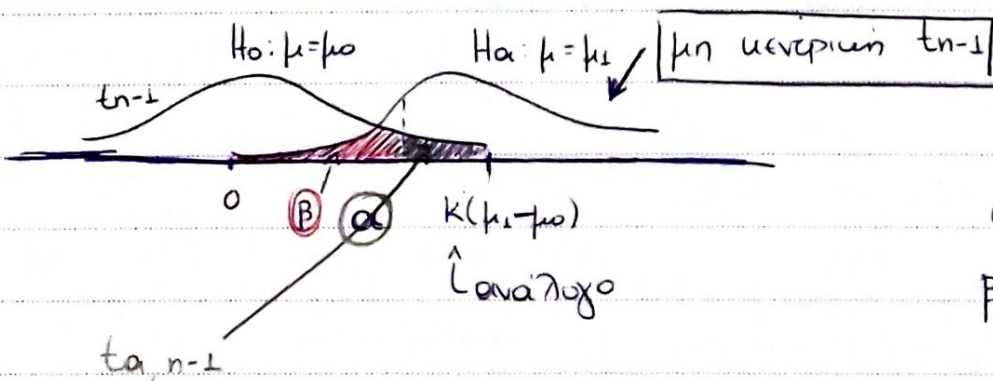 Ho: μ=μο Ha: μ=μ₁ μη κεντρική tn-1
tn-1
0 β α κ(μ₁-μο)
ανάλογο
tα, n-1